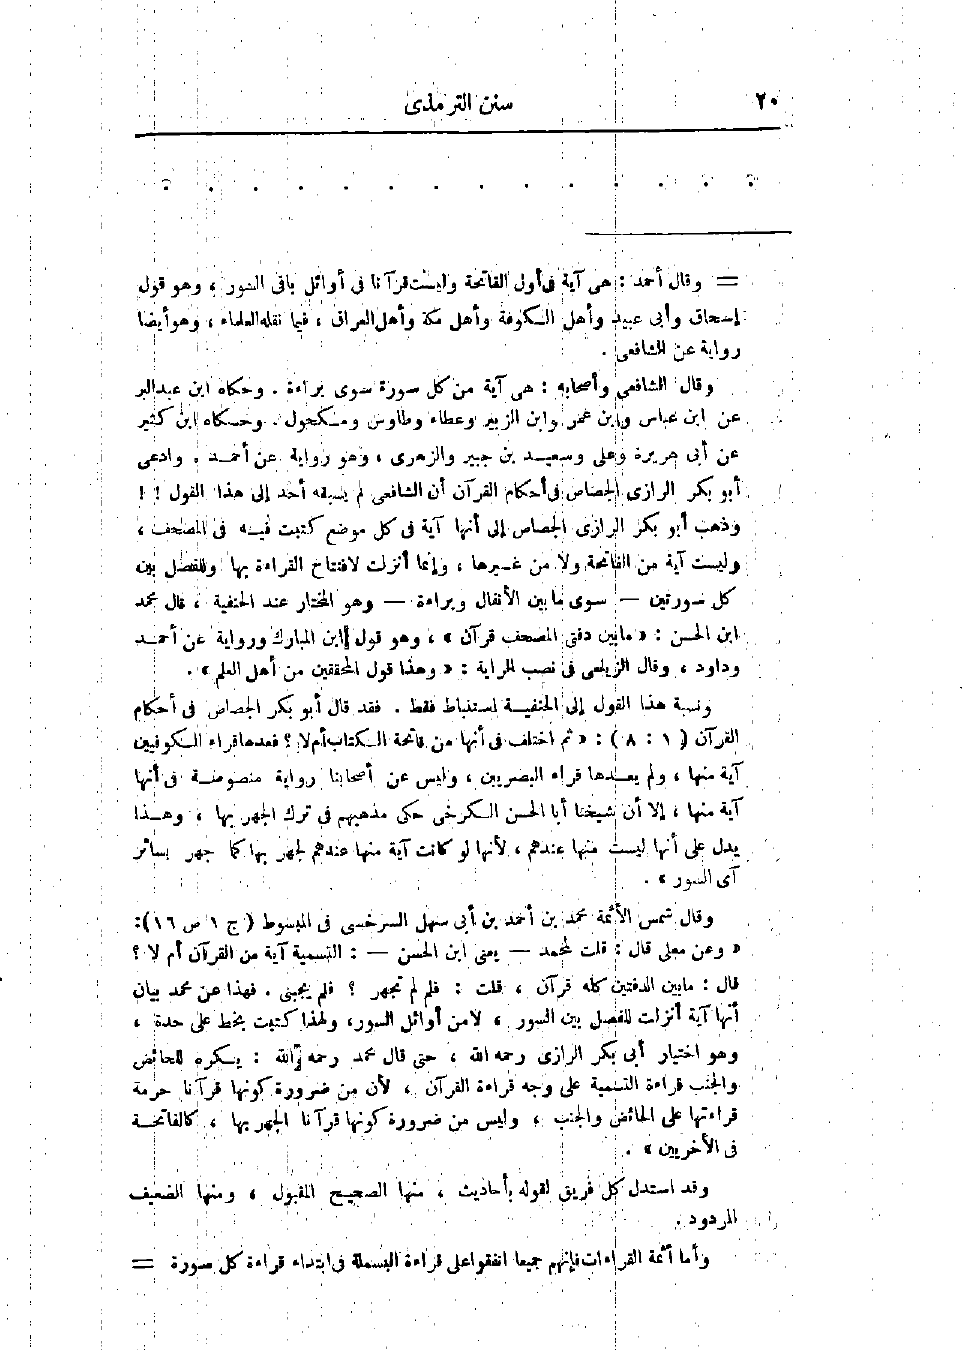 ٢٠
سنن الترمذى
= وقال أحمد : هى آية فى أول الفاتحة وليست قرآنا فى أوائل باقى السور ، وهو قول
إسحاق وأبى عبيد وأهل الكوفة وأهل مكة وأهل العراق ، فيما نقله العلماء ، وهو أيضا
رواية عن الشافعى .
وقال الشافعى وأصحابه : هى آية من كل سورة سوى براءة . وحكاه ابن عبد البر
عن ابن عباس وابن عمر وابن الزبير وعطاء وطاوس ومكحول . وحكاه ابن كثير
عن أبى هريرة وعلى وسعيد بن جبير والزهرى ، وهو رواية عن أحمد . وادعى
أبو بكر الرازى الجصاص فى أحكام القرآن أن الشافعى لم يسبقه أحد إلى هذا القول ! !
وذهب أبو بكر الرازى الجصاص إلى أنها آية فى كل موضع كتبت فيه فى المصحف ،
وليست آية من الفاتحة ولا من غيرها ، وإنما أنزلت لافتتاح القراءة بها وللفصل بين
كل سورتين — سوى ما بين الأنفال وبراءة — وهو المختار عند الحنفية ، قال محمد
ابن الحسن : « مابين دفتى المصحف قرآن » ، وهو قول ابن المبارك ورواية عن أحمد
وداود ، وقال الزيلعى فى نصب الراية : « وهذا قول المحققين من أهل العلم » .
ونسبة هذا القول إلى الحنفية استنباط فقط . فقد قال أبو بكر الجصاص فى أحكام
القرآن ( ١ : ٨ ) : « ثم اختلف فى أنها من فاتحة الكتاب أم لا ؟ فعدها قراء الكوفيين
آية منها ، ولم يعدها قراء البصريين ، وليس عن أصحابنا رواية منصوصة فى أنها
آية منها ، إلا أن شيخنا أبا الحسن الكرخى حكى مذهبهم فى ترك الجهر بها ، وهذا
يدل على أنها ليست منها عندهم ، لأنها لو كانت آية منها عندهم لجهر بها كما جهر بسائر
آى السور » .
وقال شمس الأئمة محمد بن أحمد بن أبى سهل السرخسى فى المبسوط ( ج ١ ص ١٦ ) :
« وعن معلى قال : قلت لمحمد — يعنى ابن الحسن — : التسمية آية من القرآن أم لا ؟
قال : مابين الدفتين كله قرآن ، قلت : فلم لم تجهر ؟ فلم يجبنى . فهذا عن محمد بيان
أنها آية أنزلت للفصل بين السور ، لا من أوائل السور ، ولهذا كتبت بخط على حدة ،
وهو اختيار أبى بكر الرازى رحمه الله ، حتى قال محمد رحمه الله : يكره للحائض
والجنب قراءة التسمية على وجه قراءة القرآن ، لأن من ضرورة كونها قرآنا حرمة
قراءتها على الحائض والجنب ، وليس من ضرورة كونها قرآنا الجهر بها ، كالفاتحة
فى الأخريين » .
وقد استدل كل فريق لقوله بأحاديث ، منها الصحيح المقبول ، ومنها الضعيف
المردود .
وأما أئمة القراءات فإنهم جميعا اتفقوا على قراءة البسملة فى ابتداء قراءة كل سورة =